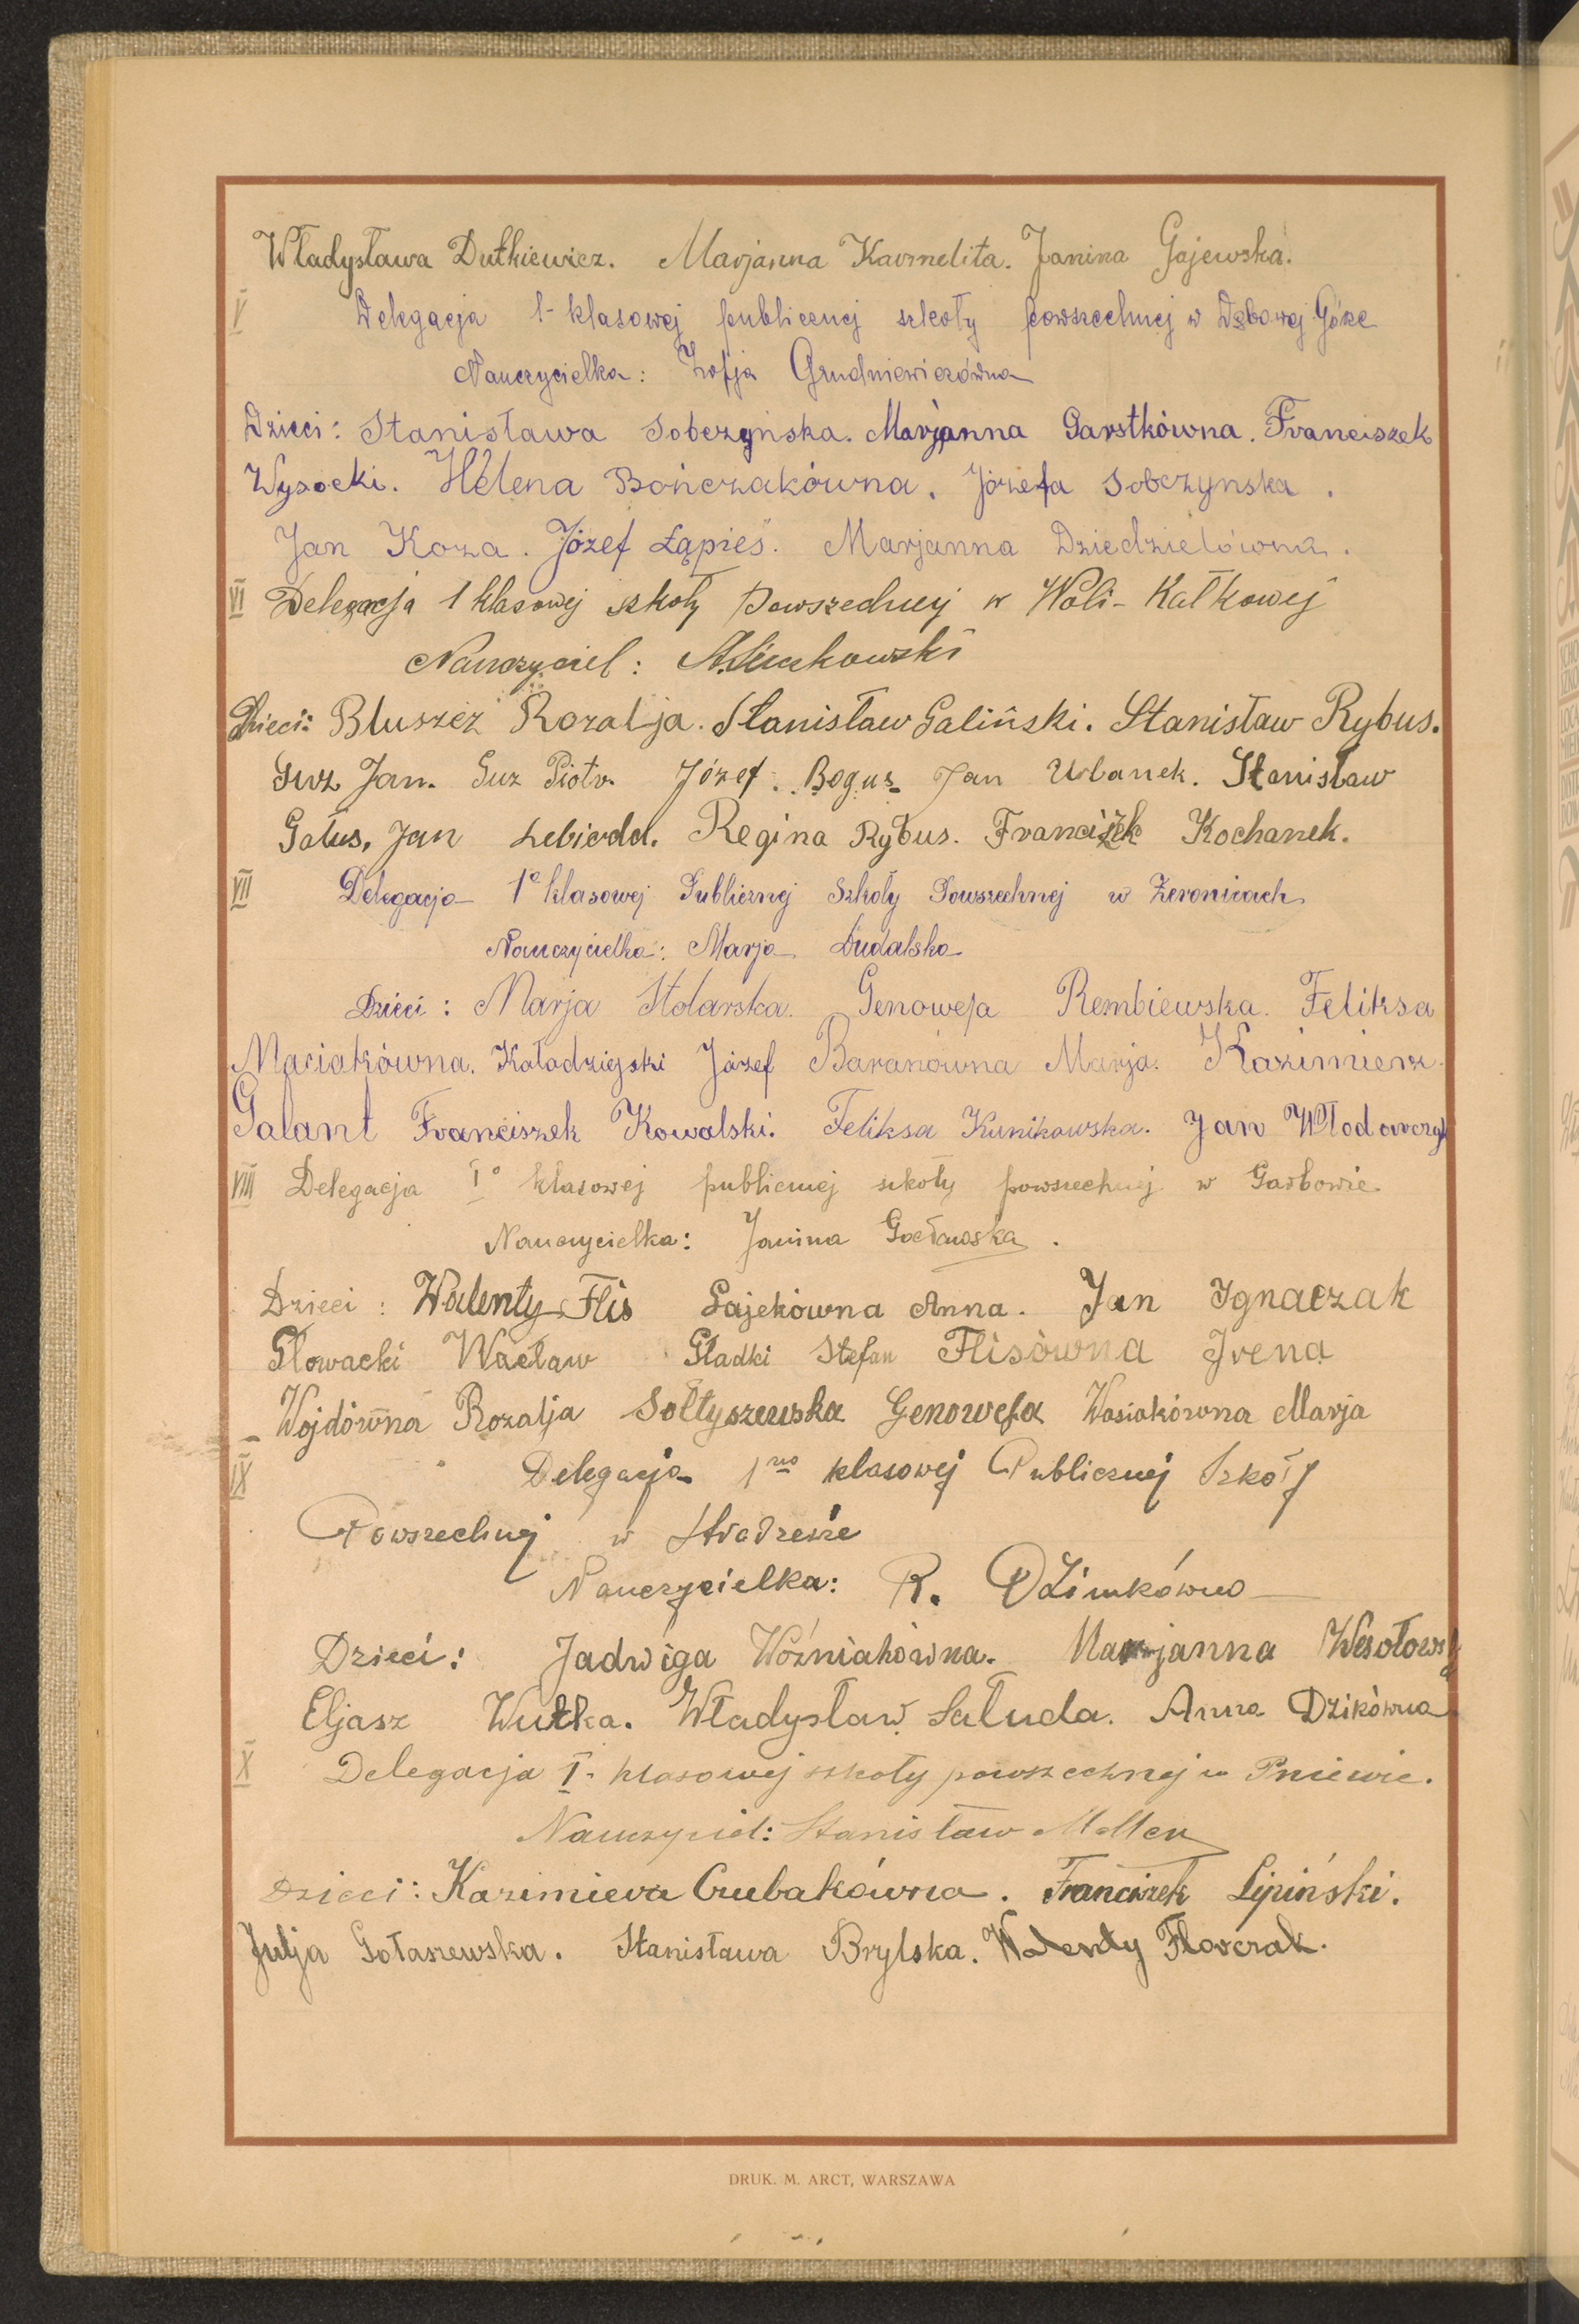 Władysława Dutkiewicz. Marjanna Karmelita. Janina Gajewska.
V Delegacja 1-klasowej publicznej szkoły powszechnej w Dębowej Górze
Nauczycielka: Zofja Grudniewiczówna
Dzieci: Stanisława Sobczynska. Marjanna Garstkówna. Franciszek
Wysocki. Helena Bończakówna. Józefa Sobczynska.
Jan Koza. Józef Łąpieś. Marjanna Dziedzielówna.
VI Delegacja 1 klasowej szkoły Powszechnej w Woli-Kałkowej
Nauczyciel:
Dzieci: Bluszcz Rozalja. Stanisław Galiński. Stanisław Rybus.
Guz Jan. Guz Piotr. Józef Bogus Jan Urbanek. Stanisław
Gałus, Jan Lebioda. Regina Rybus. Franciszek Kochanek.
VII Delegacja 1º klasowej Publicznej Szkoły Powszechnej w Żeronicach
Nauczycielka: Marja Dudalska
Dzieci: Marja Stolarska. Genowefa Rembiewska. Feliksa
Maciakówna. Kaładziejski Józef Baranówna Marja. Kazimierz
Galant Franciszek Kowalski. Feliksa Kunikowska. Jan Włodarczyk
VIII Delegacja Iº klasowej publicznej szkoły powszechnej w Garbowie
Nauczycielka: Janina Gocławska.
Dzieci: Walenty Flis Łajekówna Anna. Jan Ignaczak
Głowacki Wacław Gładki Stefan Flisówna Irena
Wojdówna Rozalja Sołtyszewska Genowefa Wasiakówna Marja
IX Delegacja 1no klasowej Publicznej Szkoły
Powszechnej w Stradzewie
Nauczycielka: R. Dżimkówna
Dzieci: Jadwiga Woźniakówna. Marjanna Wesołowska
Eljasz Wutka. Władysław Sałuda. Anna Dzikówna
X Delegacja I-klasowej szkoły powszechnej w Pniewie.
Nauczyciel: Stanisław Meller
Dzieci: Kazimiera Czubakówna. Franciszek Lipiński.
Julja Gołaszewska. Stanisława Brylska. Walenty Florczak.
DRUK. M. ARCT, WARSZAWA